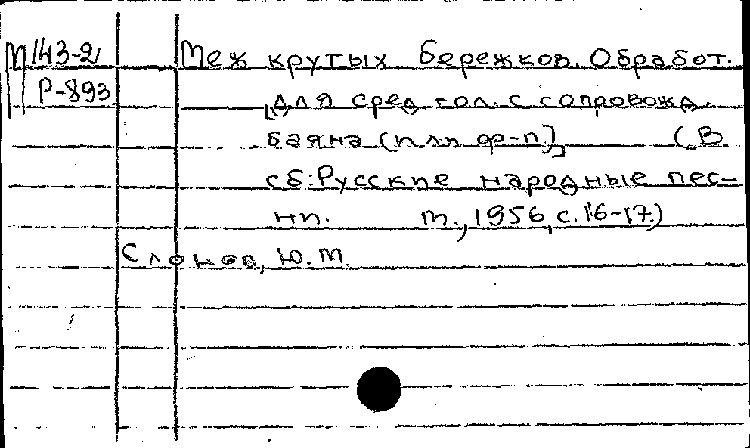 М143-2 Меж крутых бережков. Обработ.
Р-893 [для сред гол. с сопровожд.
баяна (или фр-п)] (В
сб: Русские народные пес-
ни. М., 1956, с. 16-17.)
Слонов, Ю. М.